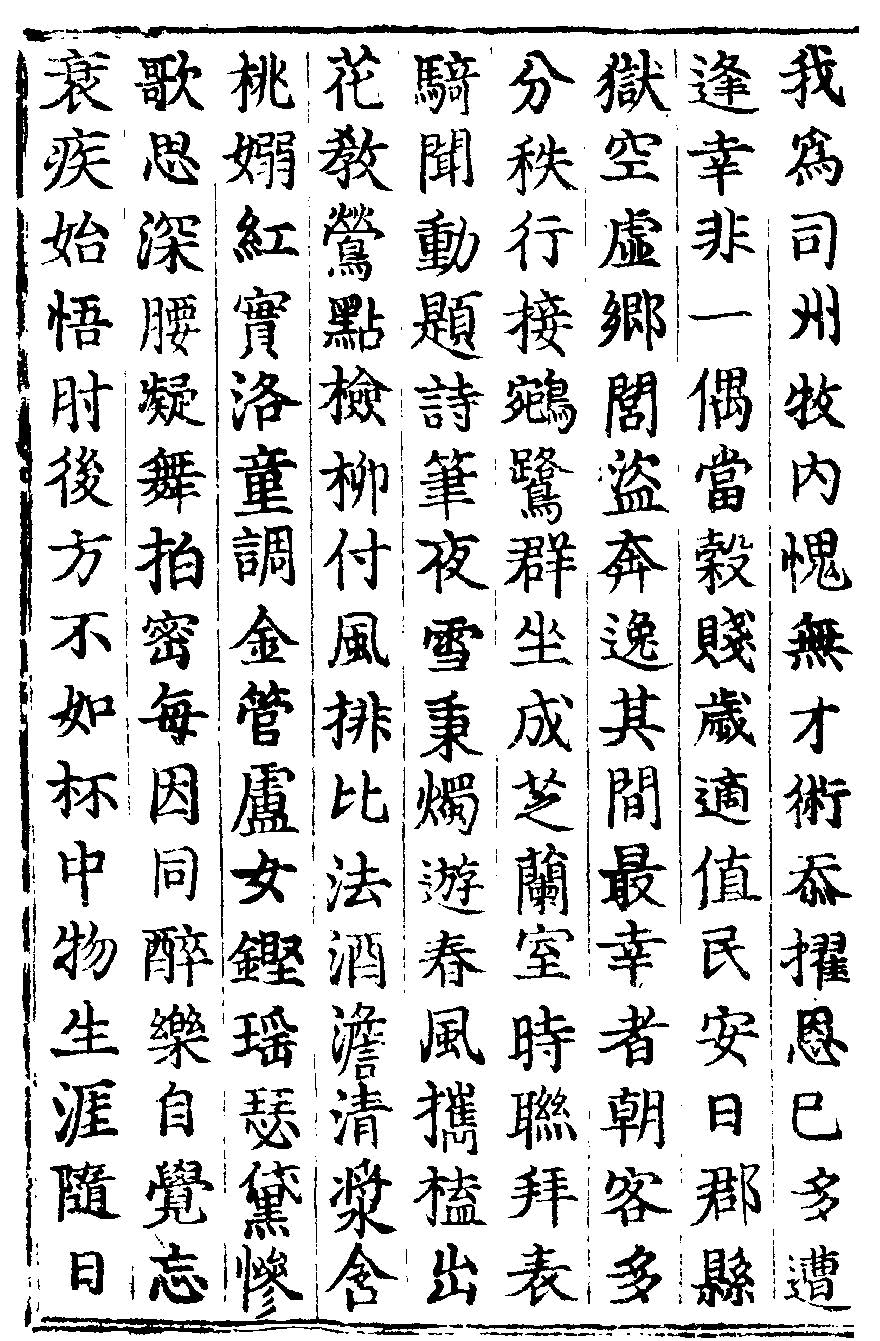 我爲司州牧内愧無才術忝擢恩已多遭
逢幸非一偶當穀賤歲適值民安日郡縣
獄空虛鄉閭盜奔逸其間最幸者朝客多
分秩行接鵷鷺群坐成芝蘭室時聯拜表
騎聞動題詩筆夜雪秉燭遊春風攜榼出
花教鶯點檢柳付風排比法酒澹清漿含
桃嫋紅實洛童調金管盧女鏗瑶瑟黛慘
歌思深腰凝舞拍密每因同醉樂自覺忘
衰疾始悟肘後方不如杯中物生涯隨日